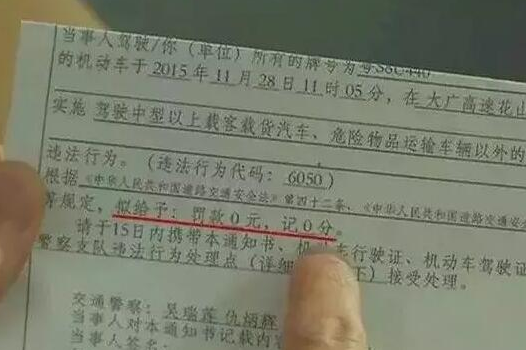 当事人驾驶/你（单位）所有的牌号为粤S6C440
的机动车于2015年11月28日11时05分，在大广高速花山
实施 驾驶中型以上载客载货汽车、危险物品运输车辆以外的
违法行为。（违法行为代码：6050）
根据《中华人民共和国道路交通安全法》第四十二条、《中华人民共和国道路交通安
等规定，拟给予：罚款0元，记0分。
请于15日内携带本通知书、机 车行驶证、机动车驾驶证
警察支队违法行为处理点（详细 下）接受处理。
交通警察：吴瑞莲 仇炳辉
当事人对本通知书记载内容
当事人签名：